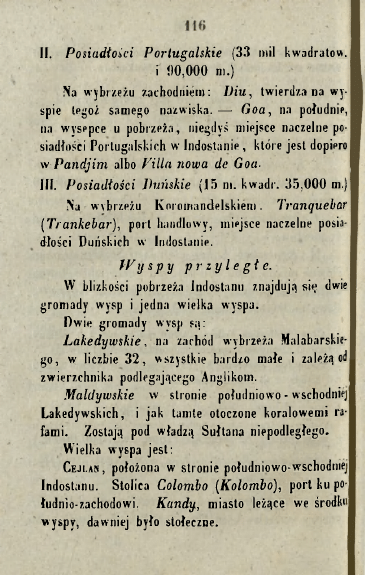 116
II. Posiadłości Portugalskie (33 mil kwadratow.
i 90,000 m.)
Na wybrzeżu zachodniem: Diu, twierdza na wy-
spie tegoż samego nazwiska. — Goa, na południe,
na wysepce u pobrzeża, niegdyś miejsce naczelne po-
siadłości Portugalskich w Indostanie, które jest dopiero
w Pandjim albo Villa nowa de Goa.
III. Posiadłości Duńskie (15 m. kwadr. 35,000 m.)
Na wybrzeżu Koromandelskiém. Tranquebar
(Trankebar), port handlowy, miejsce naczelne posia-
dłości Duńskich w Indostanie.
Wyspy przyległe.
W blizkości pobrzeża Indostanu znajdują się dwie
gromady wysp i jedna wielka wyspa.
Dwie gromady wysp są:
Lakedywskie, na zachód wybrzeża Malabarskie-
go, w liczbie 32, wszystkie bardzo małe i zależą od
zwierzchnika podlegającego Anglikom.
Maldywskie w stronie południowo-wschodniej
Lakedywskich, i jak tamte otoczone koralowemi ra-
fami. Zostają pod władzą Sułtana niepodległego.
Wielka wyspa jest:
CEJLAN, położona w stronie południowo-wschodniej
Indostanu. Stolica Colombo (Kolombo), port ku po-
łudnio-zachodowi. Kandy, miasto leżące we środku
wyspy, dawniej było stołeczne.